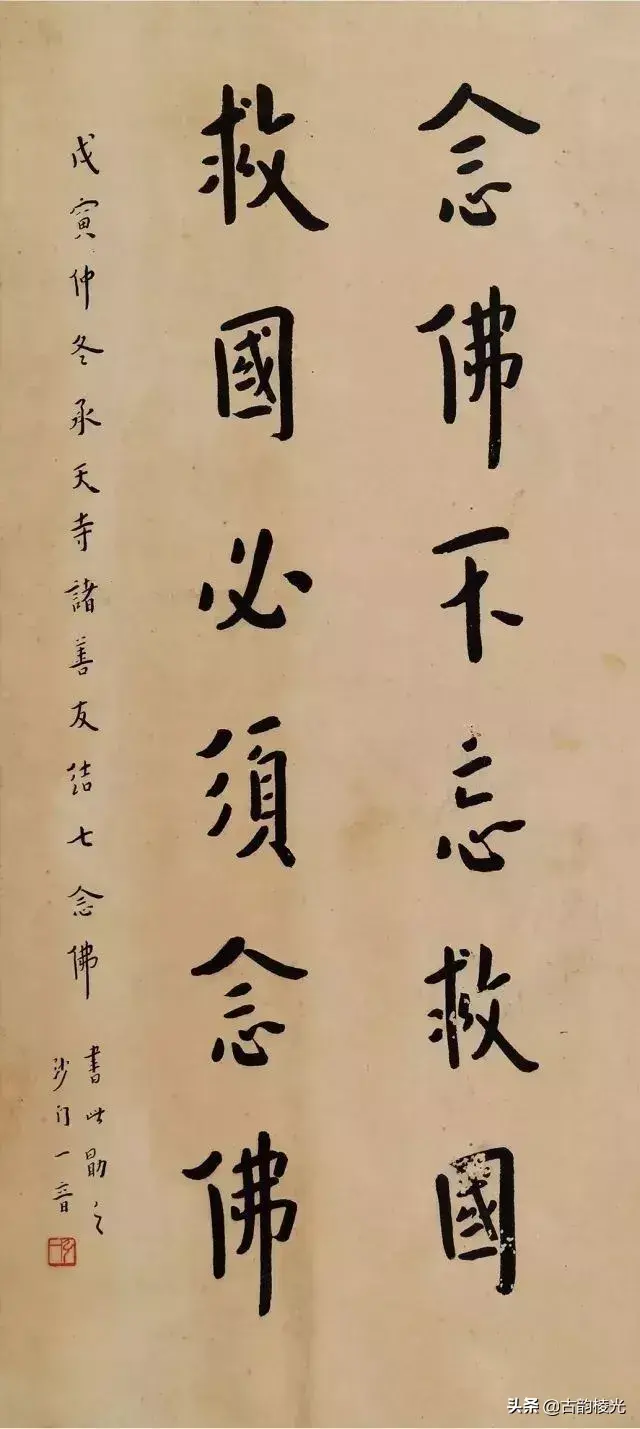 念佛不忘救國
救國必須念佛
戊寅仲冬承天寺諸善友結七念佛
書此勖之
沙门一音
头条 @古韵棱光